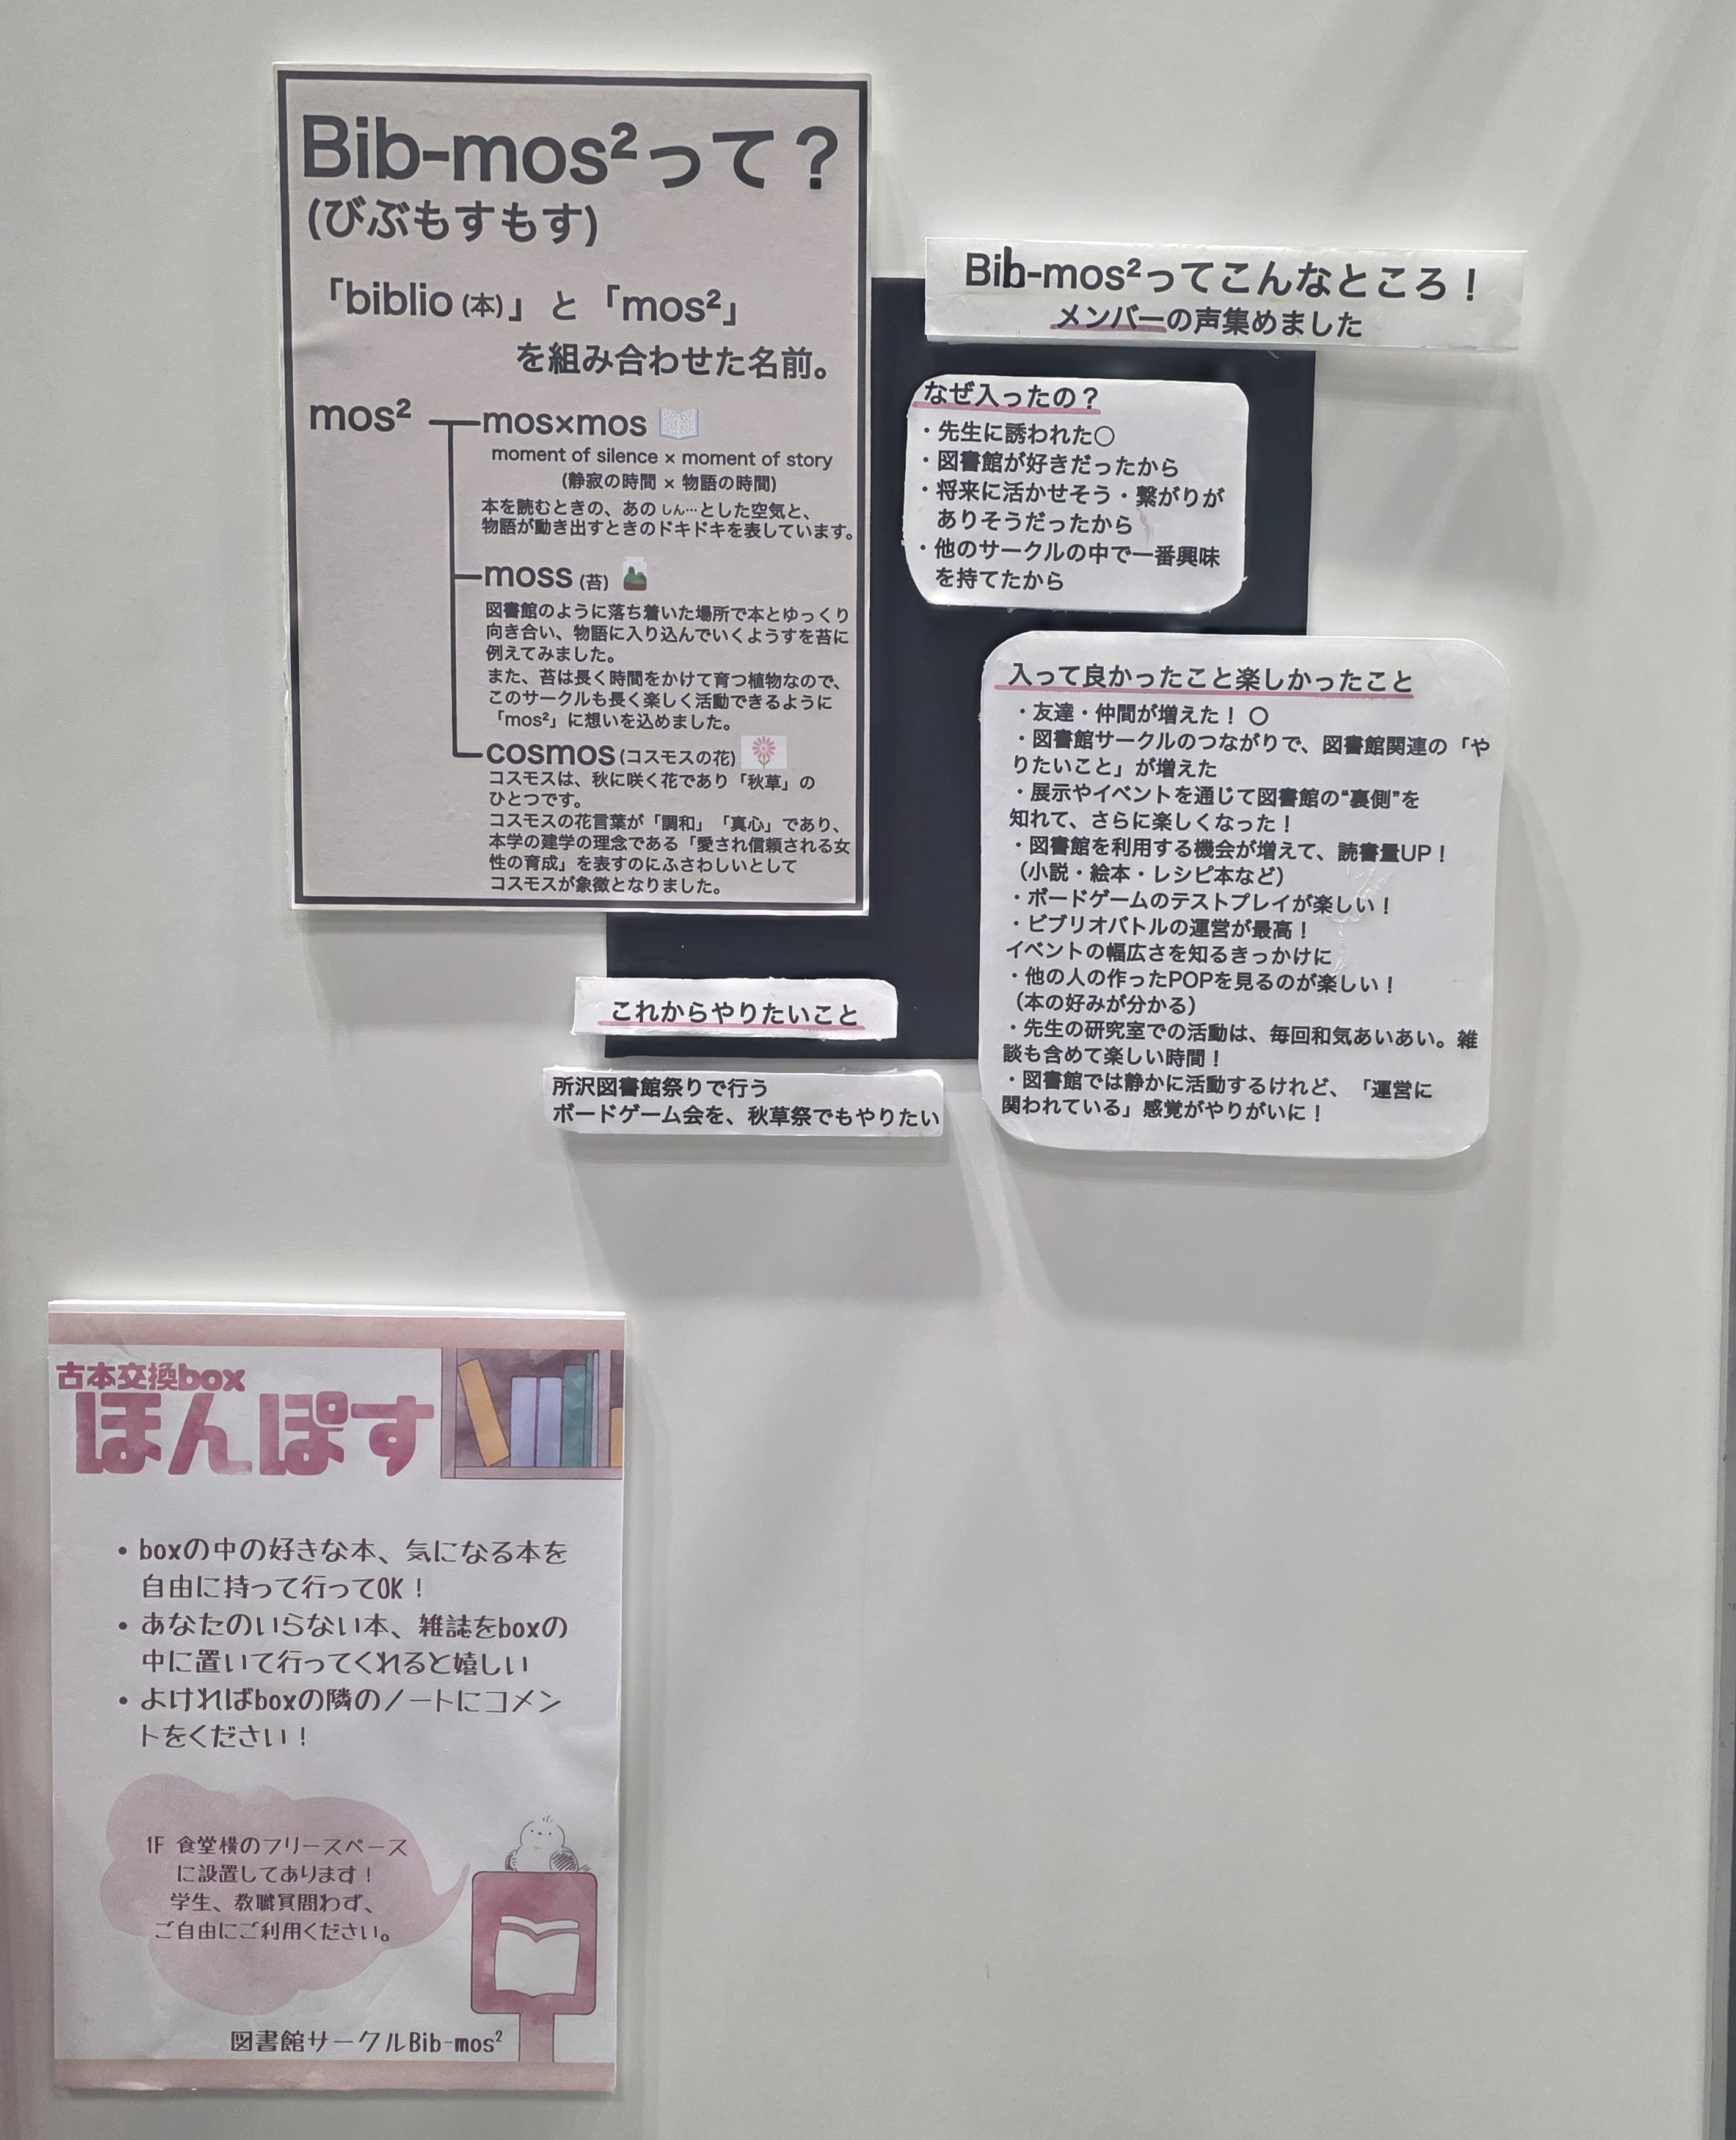 Bib-mos²って？
(びぶもすもす)
「biblio (本)」と「mos²」
を組み合わせた名前。
mos²
mos×mos
moment of silence × moment of story
(静寂の時間 × 物語の時間)
本を読むときの、あの しん…とした空気と、
物語が動き出すときのドキドキを表しています。
moss (苔)
図書館のように落ち着いた場所で本とゆっくり
向き合い、物語に入り込んでいくようすを苔に
例えてみました。
また、苔は長く時間をかけて育つ植物なので、
このサークルも長く楽しく活動できるように
「mos²」に想いを込めました。
cosmos (コスモスの花)
コスモスは、秋に咲く花であり「秋草」の
ひとつです。
コスモスの花言葉が「調和」「真心」であり、
本学の建学の理念である「愛され信頼される女
性の育成」を表すのにふさわしいとして
コスモスが象徴となりました。
Bib-mos²ってこんなところ！
メンバーの声集めました
なぜ入ったの？
・先生に誘われた〇
・図書館が好きだったから
・将来に活かせそう・繋がりが
ありそうだったから
・他のサークルの中で一番興味
を持てたから
入って良かったこと楽しかったこと
・友達・仲間が増えた！ 〇
・図書館サークルのつながりで、図書館関連の「や
りたいこと」が増えた
・展示やイベントを通じて図書館の“裏側”を
知れて、さらに楽しくなった！
・図書館を利用する機会が増えて、読書量UP！
（小説・絵本・レシピ本など）
・ボードゲームのテストプレイが楽しい！
・ビブリオバトルの運営が最高！
イベントの幅広さを知るきっかけに
・他の人の作ったPOPを見るのが楽しい！
（本の好みが分かる）
・先生の研究室での活動は、毎回和気あいあい。雑
談も含めて楽しい時間！
・図書館では静かに活動するけれど、「運営に
関われている」感覚がやりがいに！
これからやりたいこと
所沢図書館祭りで行う
ボードゲーム会を、秋草祭でもやりたい
古本交換box
ほんぽす
• boxの中の好きな本、気になる本を
自由に持って行ってOK！
• あなたのいらない本、雑誌をboxの
中に置いて行ってくれると嬉しい
• よければboxの隣のノートにコメン
トをください！
1F 食堂横のフリースペース
に設置してあります！
学生、教職員問わず、
ご自由にご利用ください。
図書館サークルBib-mos²